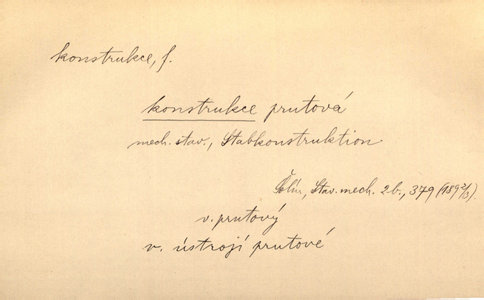 konstrukce, f.
konstrukce prutová
mech. stav., Stabkonstruktion
Stav. mech. 2b., 379 (1892/3).
v. prutový
v. ústrojí prutové